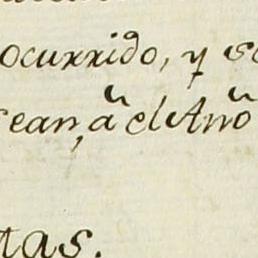 ocurrido, y
sean, à el Año
tas.